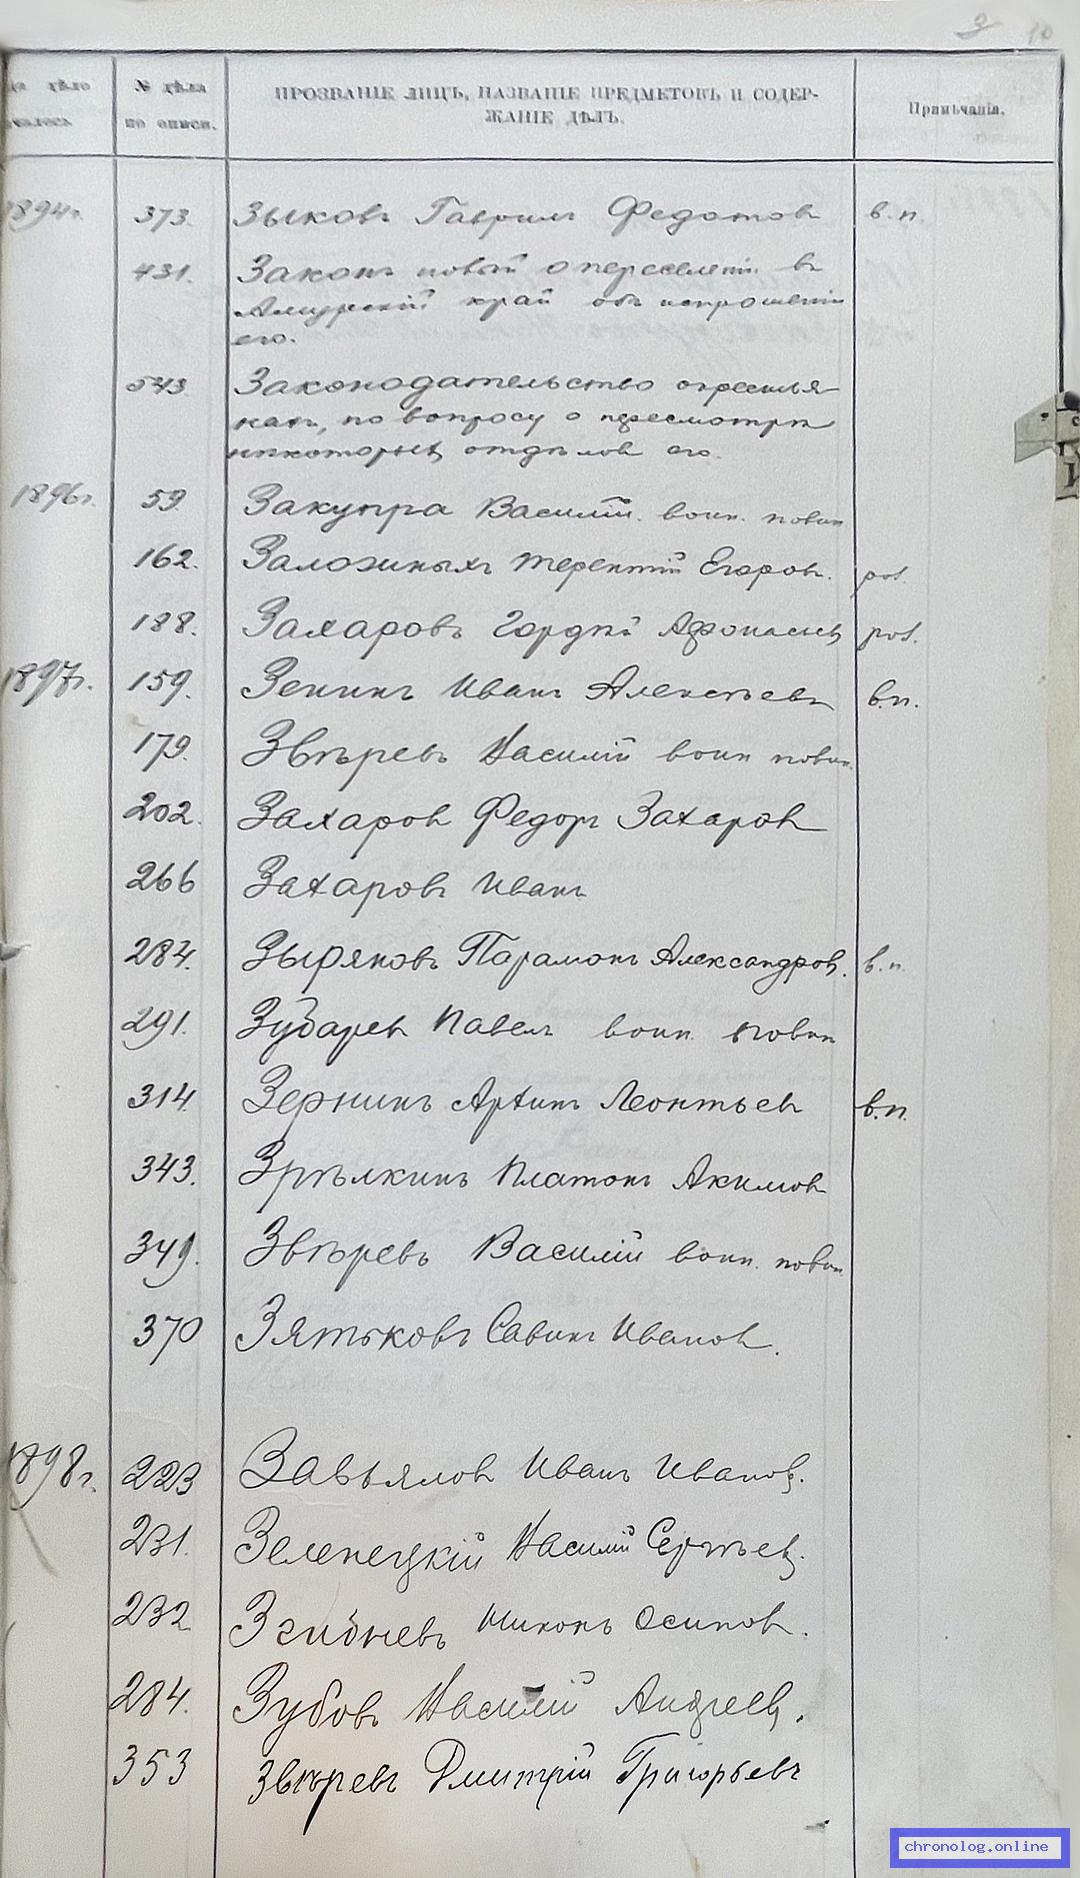 3 10
дѣло
№ дѣла
по описи.
ПРОЗВАНІЕ ЛИЦЪ, НАЗВАНІЕ ПРЕДМЕТОВЪ И СОДЕР-
ЖАНІЕ ДѢЛЪ.
Примѣчанія.
1894г. 373. Зыковъ Гаврилъ Федотовъ в.п.
431. Законъ новый о переселеніи въ
Амурскій край объ испрошеніи
его.
543 Законодательство о крестья
нахъ, по вопросу о пересмотрѣ
нѣкоторыхъ отдѣловъ его.
1896г. 59. Закупра Василій. воин. повин
162. Заложныхъ Терентій Егоровъ. роз.
188. Захаровъ Гордѣй Афонасьев роз.
1897г. 159. Зенинъ Иванъ Алексѣевъ в.п.
179. Звѣревъ Василій воин повин.
202. Захаровъ Федоръ Захаровъ
266 Захаровъ Иванъ
284. Зыряновъ Парамонъ Александров. в.п.
291. Зубаревъ Павелъ воин. повин
314. Зернинъ Архипъ Леонтьевъ в.п.
343. Зрѣлкинъ Платонъ Акимовъ
349. Звѣревъ Василій воин. повин.
370 Зятьковъ Савинъ Ивановъ.
1898г. 223 Завьяловъ Иванъ Иванов.
231. Зеленецкій Василій Сергѣев.
232. Никонъ Осиповъ.
284. Зубовъ Василій Андреев.
353 Звѣревъ Дмитрій Григорьевъ
chronolog.online